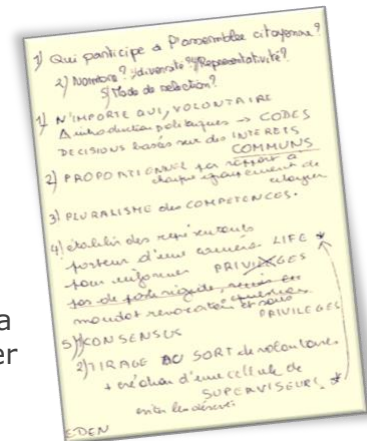 1) Qui participe à l'assemblée citoyenne?
2) Nombre? 3) diversité? 4) Représentativité?
5) Mode de sélection?
1) N'IMPORTE QUI, VOLONTAIRE
introduction politiques → CODES
DECISIONS basées sur des INTERETS
COMMUNS
2) PROPOTIONNEL par rapport à
chaque groupement de
citoyen
3) PLURALISME des COMPETENCES.
4) établir des représentants
porteur d'une caméra LIFE *
pour informer PRIVILEGES
pas de
mandat révocation et sans
PRIVILEGES
5) 1) CONSENSUS
2) TIRAGE AU SORT de volontaires
+ création d'une cellule de
SUPERVISEURS *
EDEN
a
er